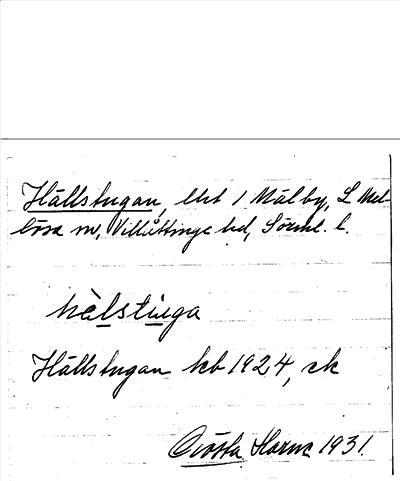 Hällstugan, lht 1 Mälby, L Mel-
lösa sn, Villåttinge hd, Sörml. l.
hälstu̇ga
Hällstugan kb 1924, ek
Gösta Harne 1931.